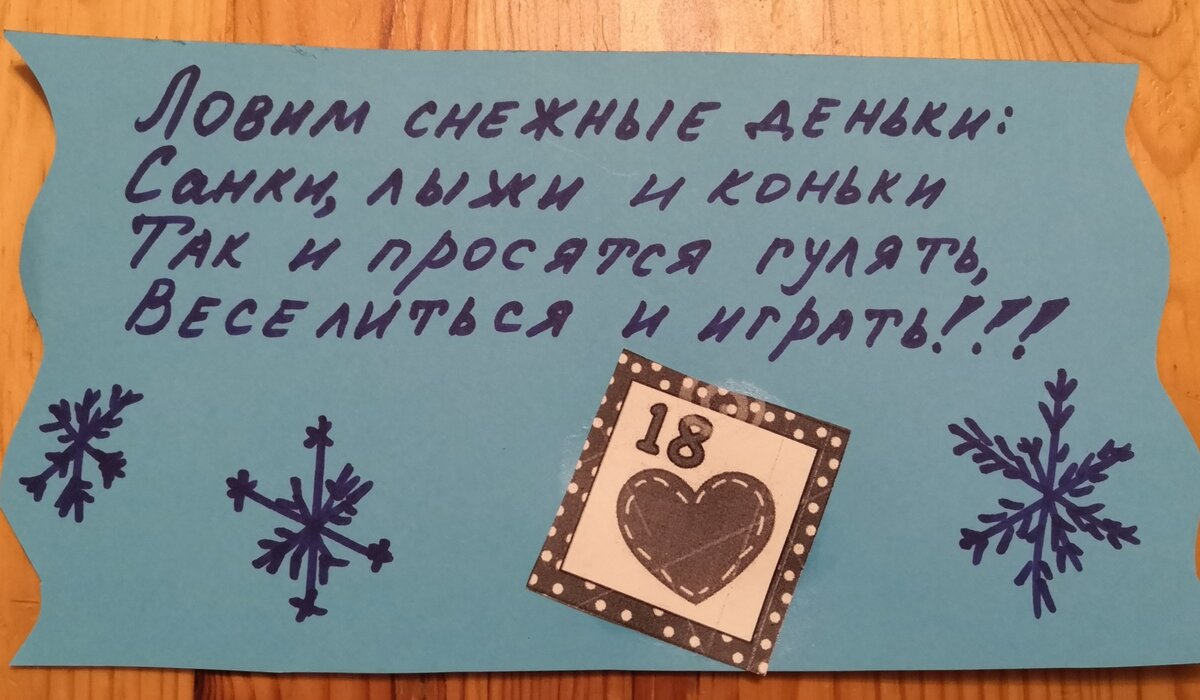 Ловим снежные деньки:
Санки, лыжи и коньки
Так и просятся гулять,
Веселиться и играть!!!
18